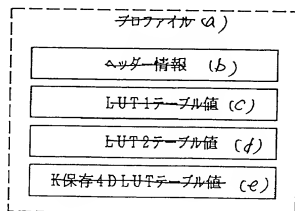 プロファイル (a)
ヘッダー情報 (b)
LUT1テーブル値 (c)
LUT2テーブル値 (d)
K保存4DLUTテーブル値 (e)